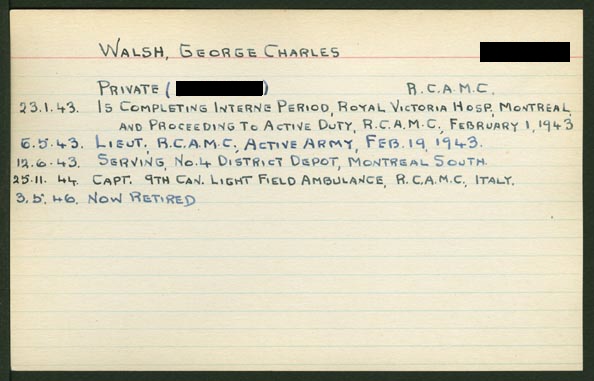 WALSH, GEORGE CHARLES
PRIVATE ( ) R.C.A.M.C.
23.1.43. IS COMPLETING INTERNE PERIOD, ROYAL VICTORIA HOSP, MONTREAL,
AND PROCEEDING TO ACTIVE DUTY, R.C.A.M.C., FEBRUARY 1, 1943
6.5.43. LIEUT., R.C.A.M.C., ACTIVE ARMY, FEB. 19, 1943.
12.6.43. SERVING, NO. 4 DISTRICT DEPOT, MONTREAL SOUTH.
25.11.44. CAPT. 9TH CAN. LIGHT FIELD AMBULANCE, R.C.A.M.C., ITALY.
3.5.46. NOW RETIRED